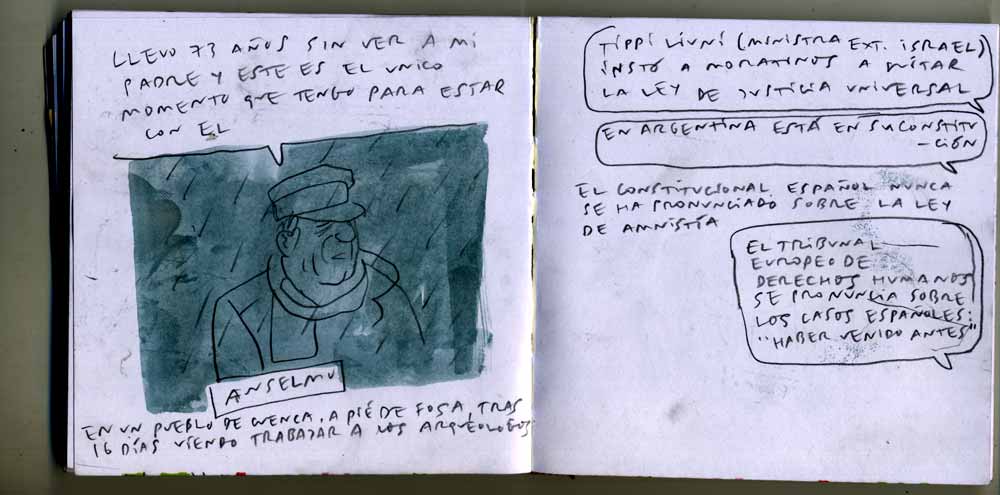 LLEVO 73 AÑOS SIN VER A MI
PADRE Y ESTE ES EL UNICO
MOMENTO QUE TENGO PARA ESTAR
CON EL
ANSELMO
EN UN PUEBLO DE CUENCA, A PIÉ DE FOSA, TRAS
16 DÍAS VIENDO TRABAJAR A LOS ARQUEOLOGOS
TIPPI LIVNI (MINISTRA EXT. ISRAEL)
INSTÓ A MORATINOS A QUITAR
LA LEY DE JUSTICIA UNIVERSAL
EN ARGENTINA ESTÁ EN SU CONSTITU
-CIÓN
EL CONSTITUCIONAL ESPAÑOL NUNCA
SE HA PRONUNCIADO SOBRE LA LEY
DE AMNISTÍA
EL TRIBUNAL
EUROPEO DE
DERECHOS HUMANOS
SE PRONUNCIA SOBRE
LOS CASOS ESPAÑOLES:
"HABER VENIDO ANTES"